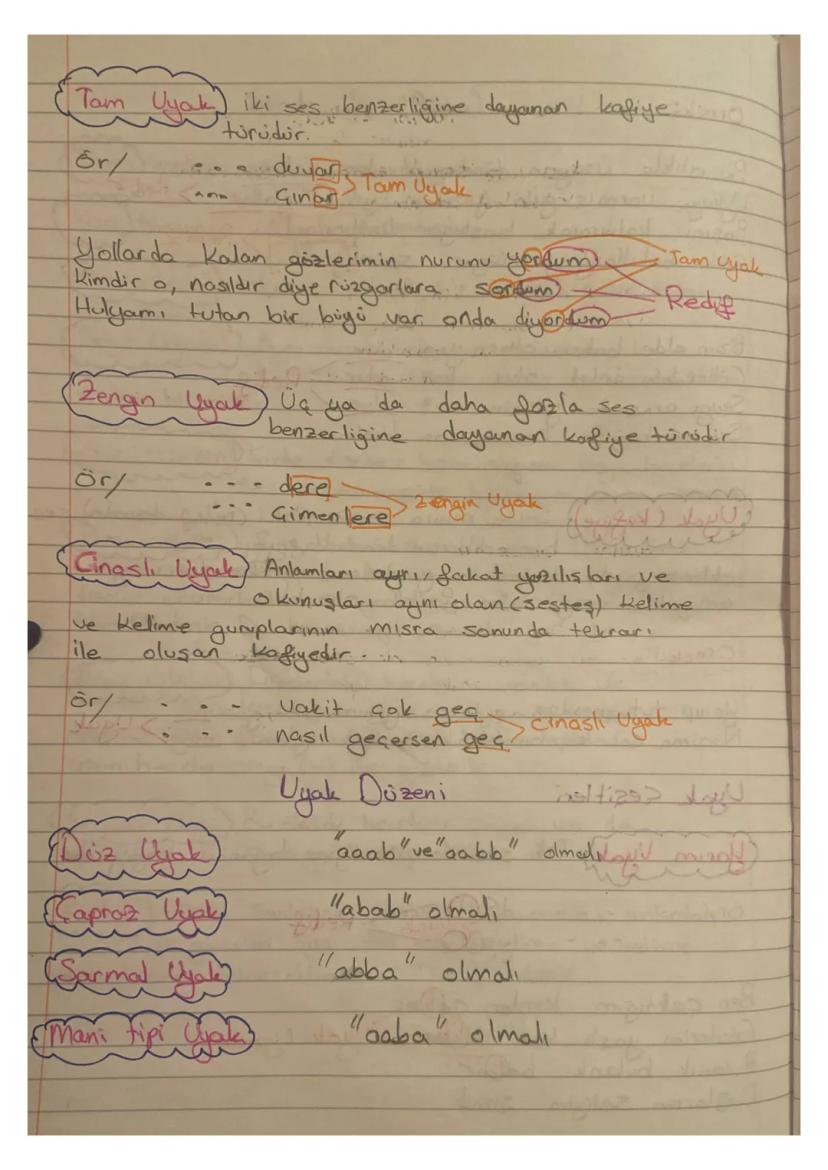 Tam Uyak iki ses benzerliğine dayanan kafiye
türüdür.
Ör/ ... duvar
... Çınar
Tam Uyak
Yollarda kalan gözlerimin nurunu yordum
Tam uyak
Kimdir o, nasıldır diye rüzgarlara sordum
Redif
Hulyamı tutan bir büyü var onda diyordum
Zengin Uyak Üç ya da daha fazla ses
benzerliğine dayanan kafiye türüdür
Ör/ --- dere
... Çimenlere
Zengin Uyak
Cinaslı Uyak Anlamları ayrı, fakat yazılışları ve
okunuşları aynı olan (sesteş) kelime
ve kelime guruplarının mısra sonunda tekrarı
ile oluşan kafiyedir.
Ör/ . - - vakit çok geç
. . - nasıl geçersen geç
cinaslı Uyak
Uyak Düzeni
Düz Uyak "aaab" ve "aabb" olmalı
Çapraz Uyak "abab" olmalı
Sarmal Uyak "abba" olmalı
Mani tipi Uyak "aaba" olmalı